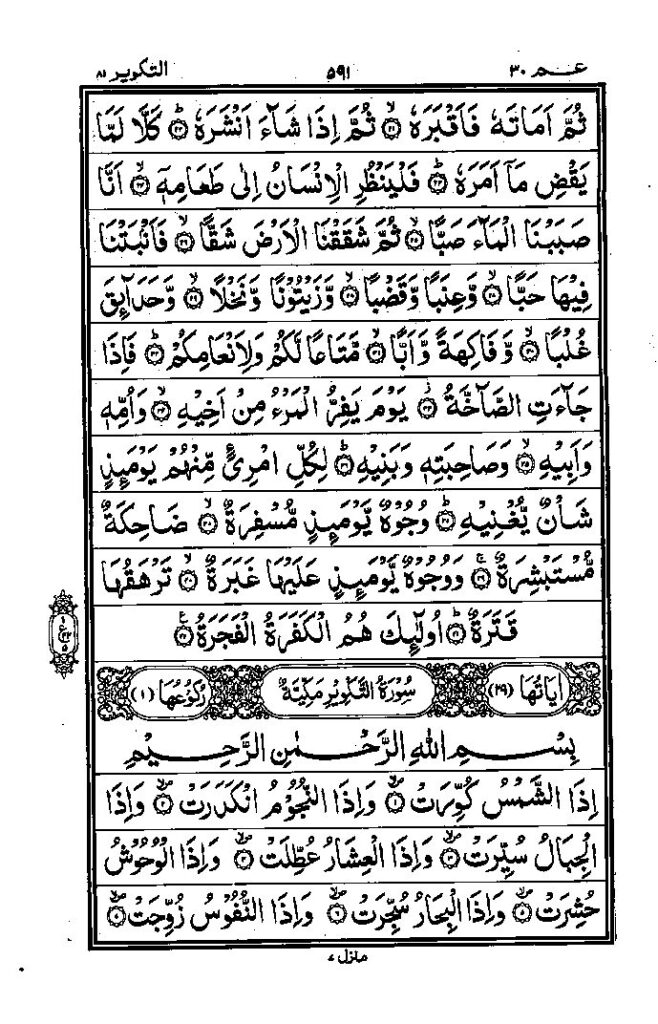 عـم ٣٠ ٥٩١ التكوير ٨١
ثُمَّ اَمَاتَهٗ فَاَقْبَرَهٗ ۙ﴿۲۱﴾ ثُمَّ اِذَا شَآءَ اَنْشَرَهٗ ؕ﴿۲۲﴾ كَلَّا لَمَّا
يَقْضِ مَاۤ اَمَرَهٗ ؕ﴿۲۳﴾ فَلْيَنْظُرِ الْاِنْسَانُ اِلٰى طَعَامِهٖۤ ۙ﴿۲۴﴾ اَنَّا
صَبَبْنَا الْمَآءَ صَبًّا ۙ﴿۲۵﴾ ثُمَّ شَقَقْنَا الْاَرْضَ شَقًّا ۙ﴿۲۶﴾ فَاَنْۢبَتْنَا
فِيْهَا حَبًّا ۙ﴿۲۷﴾ وَّعِنَبًا وَّقَضْبًا ۙ﴿۲۸﴾ وَّزَيْتُوْنًا وَّنَخْلًا ۙ﴿۲۹﴾ وَّحَدَآئِقَ
غُلْبًا ۙ﴿۳۰﴾ وَّفَاكِهَةً وَّاَبًّا ۙ﴿۳۱﴾ مَّتَاعًا لَّكُمْ وَلِاَنْعَامِكُمْ ؕ﴿۳۲﴾ فَاِذَا
جَآءَتِ الصَّآخَّةُ ۫﴿۳۳﴾ يَوْمَ يَفِرُّ الْمَرْءُ مِنْ اَخِيْهِ ۙ﴿۳۴﴾ وَاُمِّهٖ
وَاَبِيْهِ ۙ﴿۳۵﴾ وَصَاحِبَتِهٖ وَبَنِيْهِ ؕ﴿۳۶﴾ لِكُلِّ امْرِئٍ مِّنْهُمْ يَوْمَئِذٍ
شَاْنٌ يُّغْنِيْهِ ؕ﴿۳۷﴾ وُجُوْهٌ يَّوْمَئِذٍ مُّسْفِرَةٌ ۙ﴿۳۸﴾ ضَاحِكَةٌ
مُّسْتَبْشِرَةٌ ۚ﴿۳۹﴾ وَوُجُوْهٌ يَّوْمَئِذٍ عَلَيْهَا غَبَرَةٌ ۙ﴿۴۰﴾ تَرْهَقُهَا
قَتَرَةٌ ؕ﴿۴۱﴾ اُولٰٓئِكَ هُمُ الْكَفَرَةُ الْفَجَرَةُ ﴿۴۲﴾
اٰيَاتُهَا (٢٩) سُوْرَةُ التَّكْوِيْرِ مَكِّيَّةٌ رُكُوْعُهَا (١)
بِسْمِ اللهِ الرَّحْمٰنِ الرَّحِيْمِ
اِذَا الشَّمْسُ كُوِّرَتْ ۪ۙ﴿۱﴾ وَاِذَا النُّجُوْمُ انْكَدَرَتْ ۪ۙ﴿۲﴾ وَاِذَا
الْجِبَالُ سُيِّرَتْ ۪ۙ﴿۳﴾ وَاِذَا الْعِشَارُ عُطِّلَتْ ۪ۙ﴿۴﴾ وَاِذَا الْوُحُوْشُ
حُشِرَتْ ۪ۙ﴿۵﴾ وَاِذَا الْبِحَارُ سُجِّرَتْ ۪ۙ﴿۶﴾ وَاِذَا النُّفُوْسُ زُوِّجَتْ ۪ۙ﴿۷﴾
منزل ٧